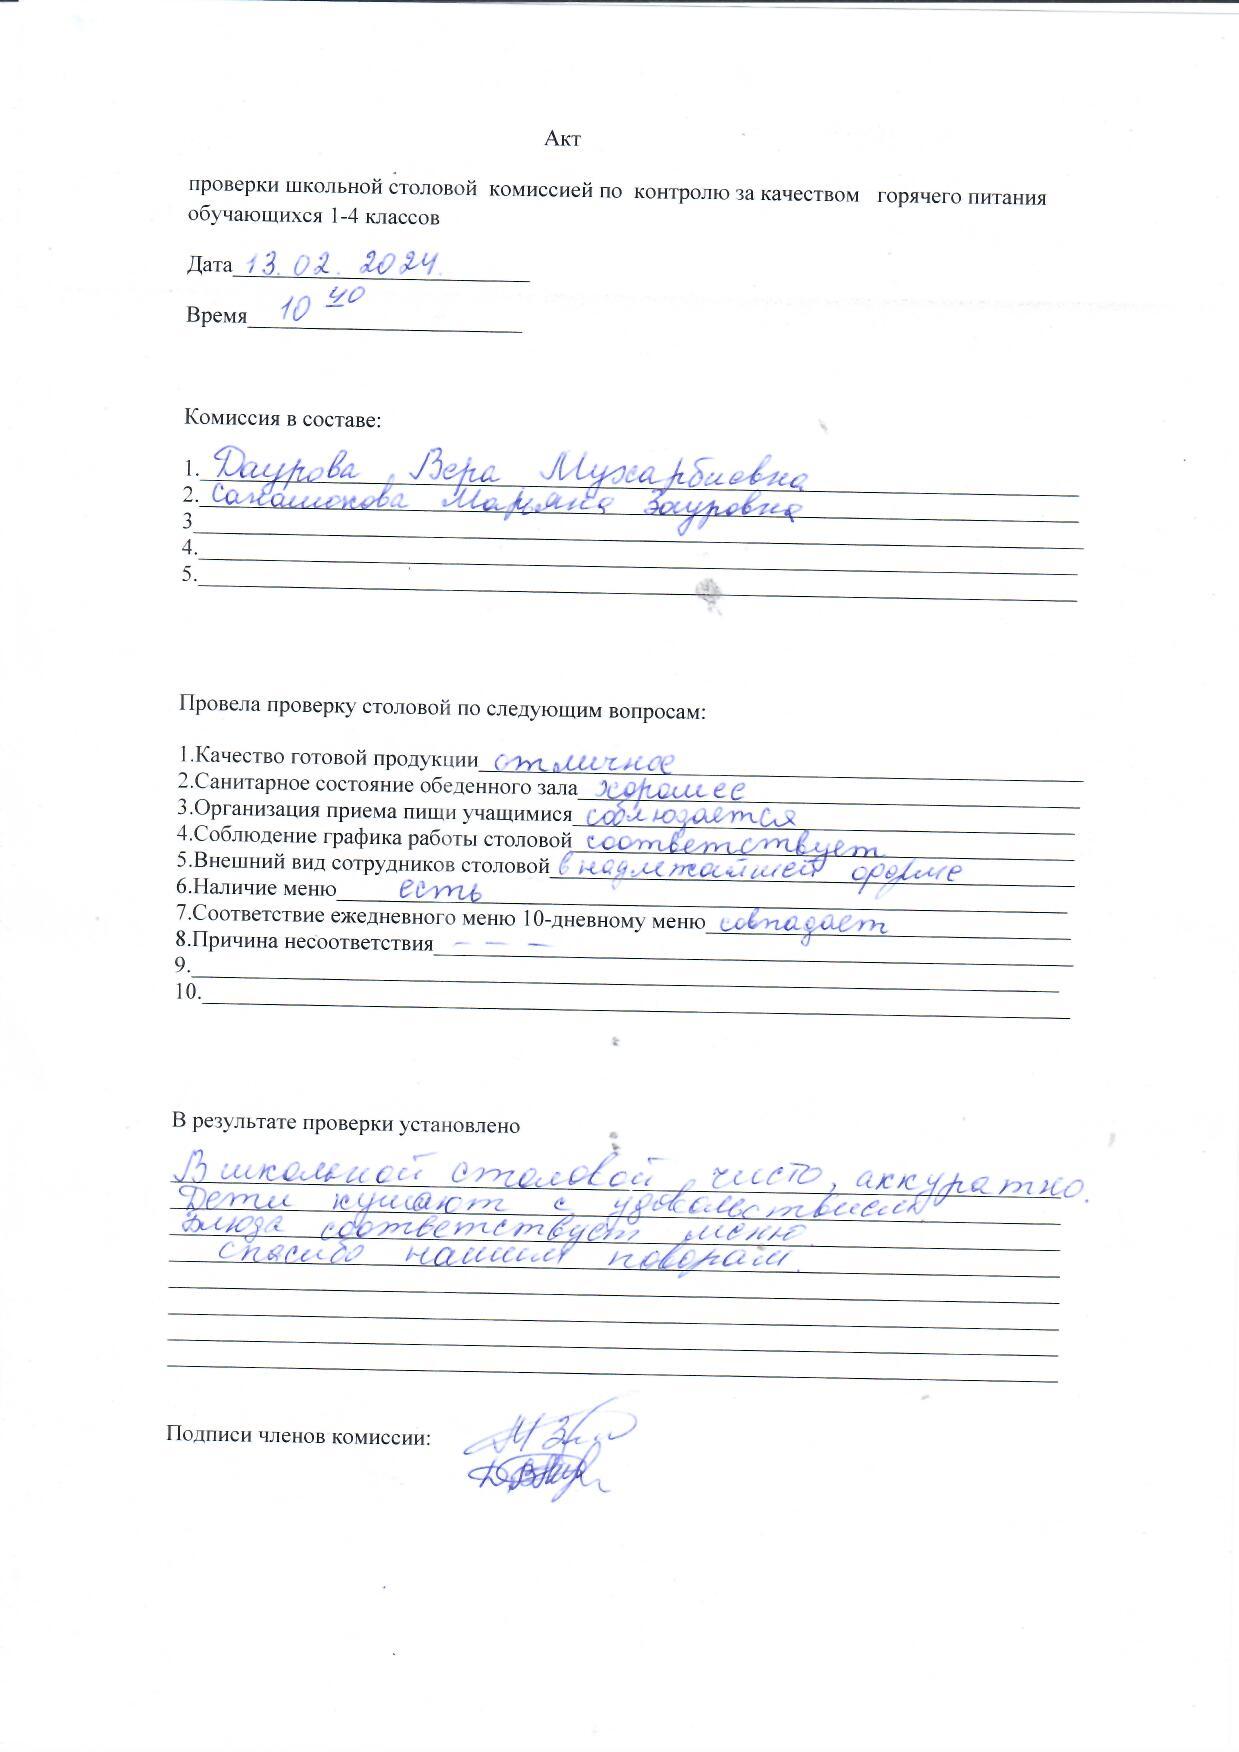 Акт
проверки школьной столовой комиссией по контролю за качеством горячего питания
обучающихся 1-4 классов
Дата 13.02.2024.
Время 10 40
Комиссия в составе:
1. Даурова Вера Мухарбиевна
2. Марьяна Зауровна
3
4.
5.
Провела проверку столовой по следующим вопросам:
1.Качество готовой продукции отличное
2.Санитарное состояние обеденного зала хорошее
3.Организация приема пищи учащимися соблюдается
4.Соблюдение графика работы столовой соответствует
5.Внешний вид сотрудников столовой в форме
6.Наличие меню есть
7.Соответствие ежедневного меню 10-дневному меню совпадает
8.Причина несоответствия - - -
9.
10.
В результате проверки установлено
В школьной столовой чисто, аккуратно.
Дети кушают с удовольствием.
Блюда соответствует меню.
спасибо нашим поворам.
Подписи членов комиссии: